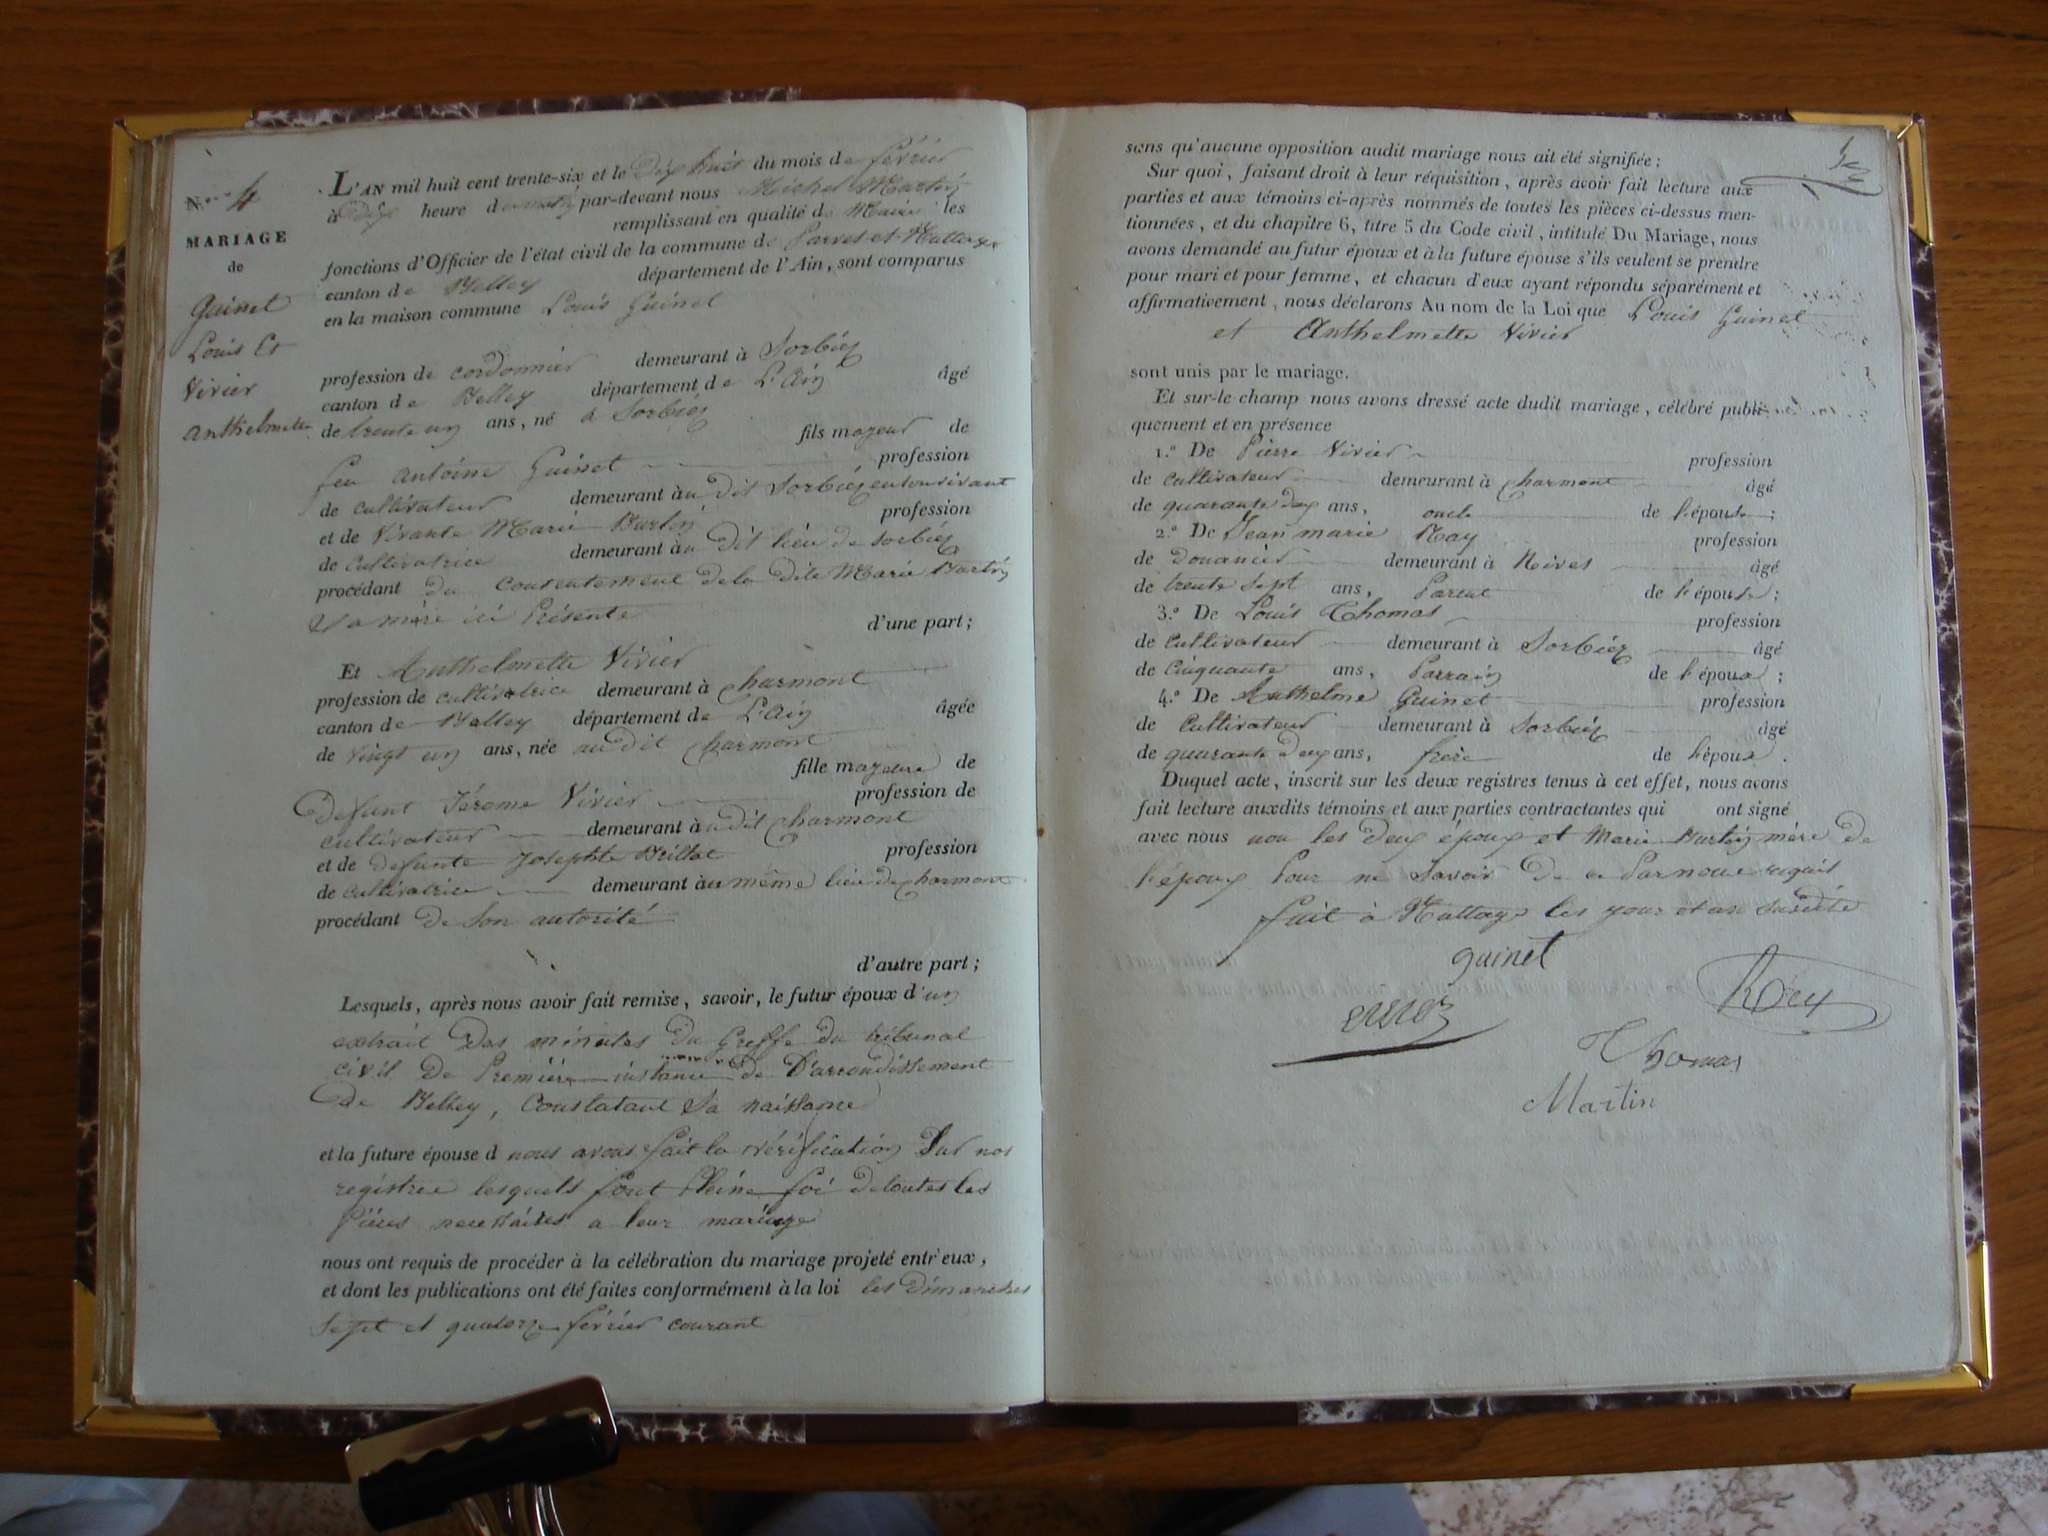 N.° 4
MARIAGE
de
Guinet
Louis Et
Vivier
anthelmette
L'AN mil huit cent trente-six et le dix huit du mois de février
à dix heure du matin par-devant nous Michel Martin
remplissant en qualité de Maire les
fonctions d'Officier de l'état civil de la commune de Parves et Nattages
canton de Belley département de l'Ain, sont comparus
en la maison commune Louis Guinet
profession de cordonnier demeurant à Sorbiéz
canton de Belley département de L'Ain âgé
de trente un ans, né à Sorbiéz
fils mageur de
feu antoine Guinet profession
de cultivateur demeurant au dit Sorbiéz en son vivant
et de Vivante Marie Burtin profession
de cultivatrice demeurant au dit lieu de sorbiéz
procédant du consentement de la dite Marie Burtin
Sa mère ici Présente d'une part;
Et Anthelmette Vivier
profession de cultivatrice demeurant à charmont
canton de Belley département de L'Ain âgée
de vingt un ans, née au dit charmont
fille mageure de
defunt Jérome Vivier profession de
cultivateur demeurant au dit charmont
et de defunte Josephte Brillat profession
de cultivatrice demeurant au même lieu de charmont
procédant de son autorité
d'autre part;
Lesquels, après nous avoir fait remise, savoir, le futur époux d'un
extrait des minutes du Greffe du tribunal
civil de Première instance de L'arrondissement
de Belley, Constatant Sa naissance
et la future épouse d nous avons fait la vérification Sur nos
registre lesquels font Pleine foi de toutes les
Pièces necessaires a leur mariage
nous ont requis de procéder à la célébration du mariage projeté entr'eux,
et dont les publications ont été faites conformément à la loi les Dimanches
Sept et quatorze février courant
sans qu'aucune opposition audit mariage nous ait été signifiée;
Sur quoi, faisant droit à leur réquisition, après avoir fait lecture aux
parties et aux témoins ci-après nommés de toutes les pièces ci-dessus men-
tionnées, et du chapitre 6, titre 5 du Code civil, intitulé Du Mariage, nous
avons demandé au futur époux et à la future épouse s'ils veulent se prendre
pour mari et pour femme, et chacun d'eux ayant répondu séparément et
affirmativement, nous déclarons Au nom de la Loi que Louis Guinet
et Anthelmette Vivier
sont unis par le mariage.
Et sur-le champ nous avons dressé acte dudit mariage, célébré publi-
quement et en présence
1.° De Pierre Vivier profession
de cultivateur demeurant à charmont âgé
de quarante deux ans, oncle de l'épouse;
2.° De Jean marie Ray profession
de douanier demeurant à âgé
de trente sept ans, Parent de l'épouse;
3.° De Louis Thomas profession
de cultivateur demeurant à Sorbiéz âgé
de cinquante ans, Parrain de l'époux;
4.° De Anthelme Guinet profession
de cultivateur demeurant à Sorbiéz âgé
de quarante deux ans, frère de l'époux.
Duquel acte, inscrit sur les deux registres tenus à cet effet, nous avons
fait lecture auxdits témoins et aux parties contractantes qui ont signé
avec nous non les deux époux et Marie Burtin mère de
l'époux Pour ne Savoir de ce Par nous requis
fait à Nattages les jour et an Susdits
guinet
Thomas
Martin